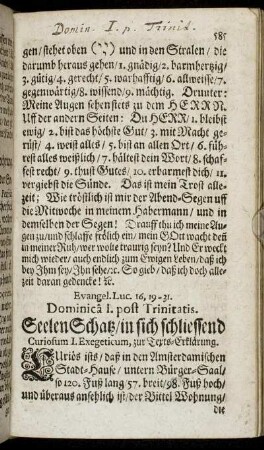 Domin. I. p. Trinit.
585
gen/stehet oben (";") und in den Stralen/ die
darumb heraus gehen/ 1. gnädig/ 2. barmhertzig/
3. gütig/ 4. gerecht/ 5. warhafftig/ 6. allweise/ 7.
gegenwärtig/ 8. wissend/ 9. mächtig. Drunter:
Meine Augen sehen stets zu dem HERRN.
Uff der andern Seiten: Du HERR/ 1. bleibst
ewig/ 2. bist das höchste Gut/ 3. mit Macht ge-
rüst/ 4. weist alles/ 5. bist an allen Ort/ 6. füh-
rest alles weißlich/ 7. hältest dein Wort/ 8. schaf-
fest recht/ 9. thust Gutes/ 10. erbarmest dich/ 11.
vergiebst die Sünde. Das ist mein Trost alle-
zeit; Wie tröstlich ist mir der Abend-Segen uff
die Mitwoche in meinem Habermann/ und in
demselben der Segen! Drauff thu ich meine Au-
gen zu/und schlaffe frölich ein/ mein GOtt wacht deß
in meiner Ruh/wer wolte traurig seyn? Und Er weckt
mich wieder/ auch endlich zum Ewigen Leben/ daß ich
bey Jhm sey/Jhn sehe/ꝛc. So gieb/ daß ich doch alle-
zeit daran gedencke! &c.
Evangel. Luc. 16, 19-31.
Dominicâ I. post Trinitatis.
Seelen Schatz/in sich schliessend
Curiosum I. Exegeticum, zur Texts-Erklärung.
Curiös ists/ daß in den Amsterdamischen
Stadt-Hause/ untern Bürger-Saal/
so 120. Fuß lang/ 57. breit/98. Fuß hoch/
und überaus ansehlich ist/der Büttel Wohnung/
die